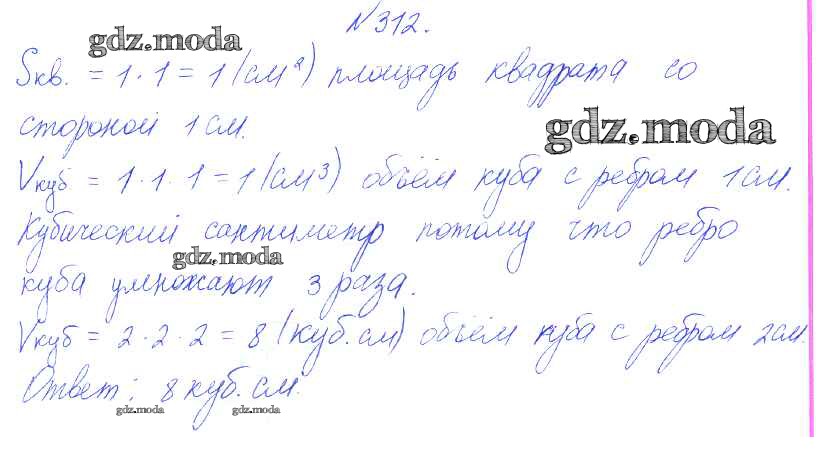 №312.
gdz.moda
Sкв. = 1·1 = 1 (см²) площадь квадрата со
стороной 1 см.
gdz.moda
Vкуб = 1·1·1 = 1 (см³) объём куба с ребром 1 см.
Кубический сантиметр потому что ребро
gdz.moda
куба умножают 3 раза.
Vкуб = 2·2·2 = 8 (куб.см) объём куба с ребром 2 см.
Ответ: 8 куб.см.
gdz.moda gdz.moda